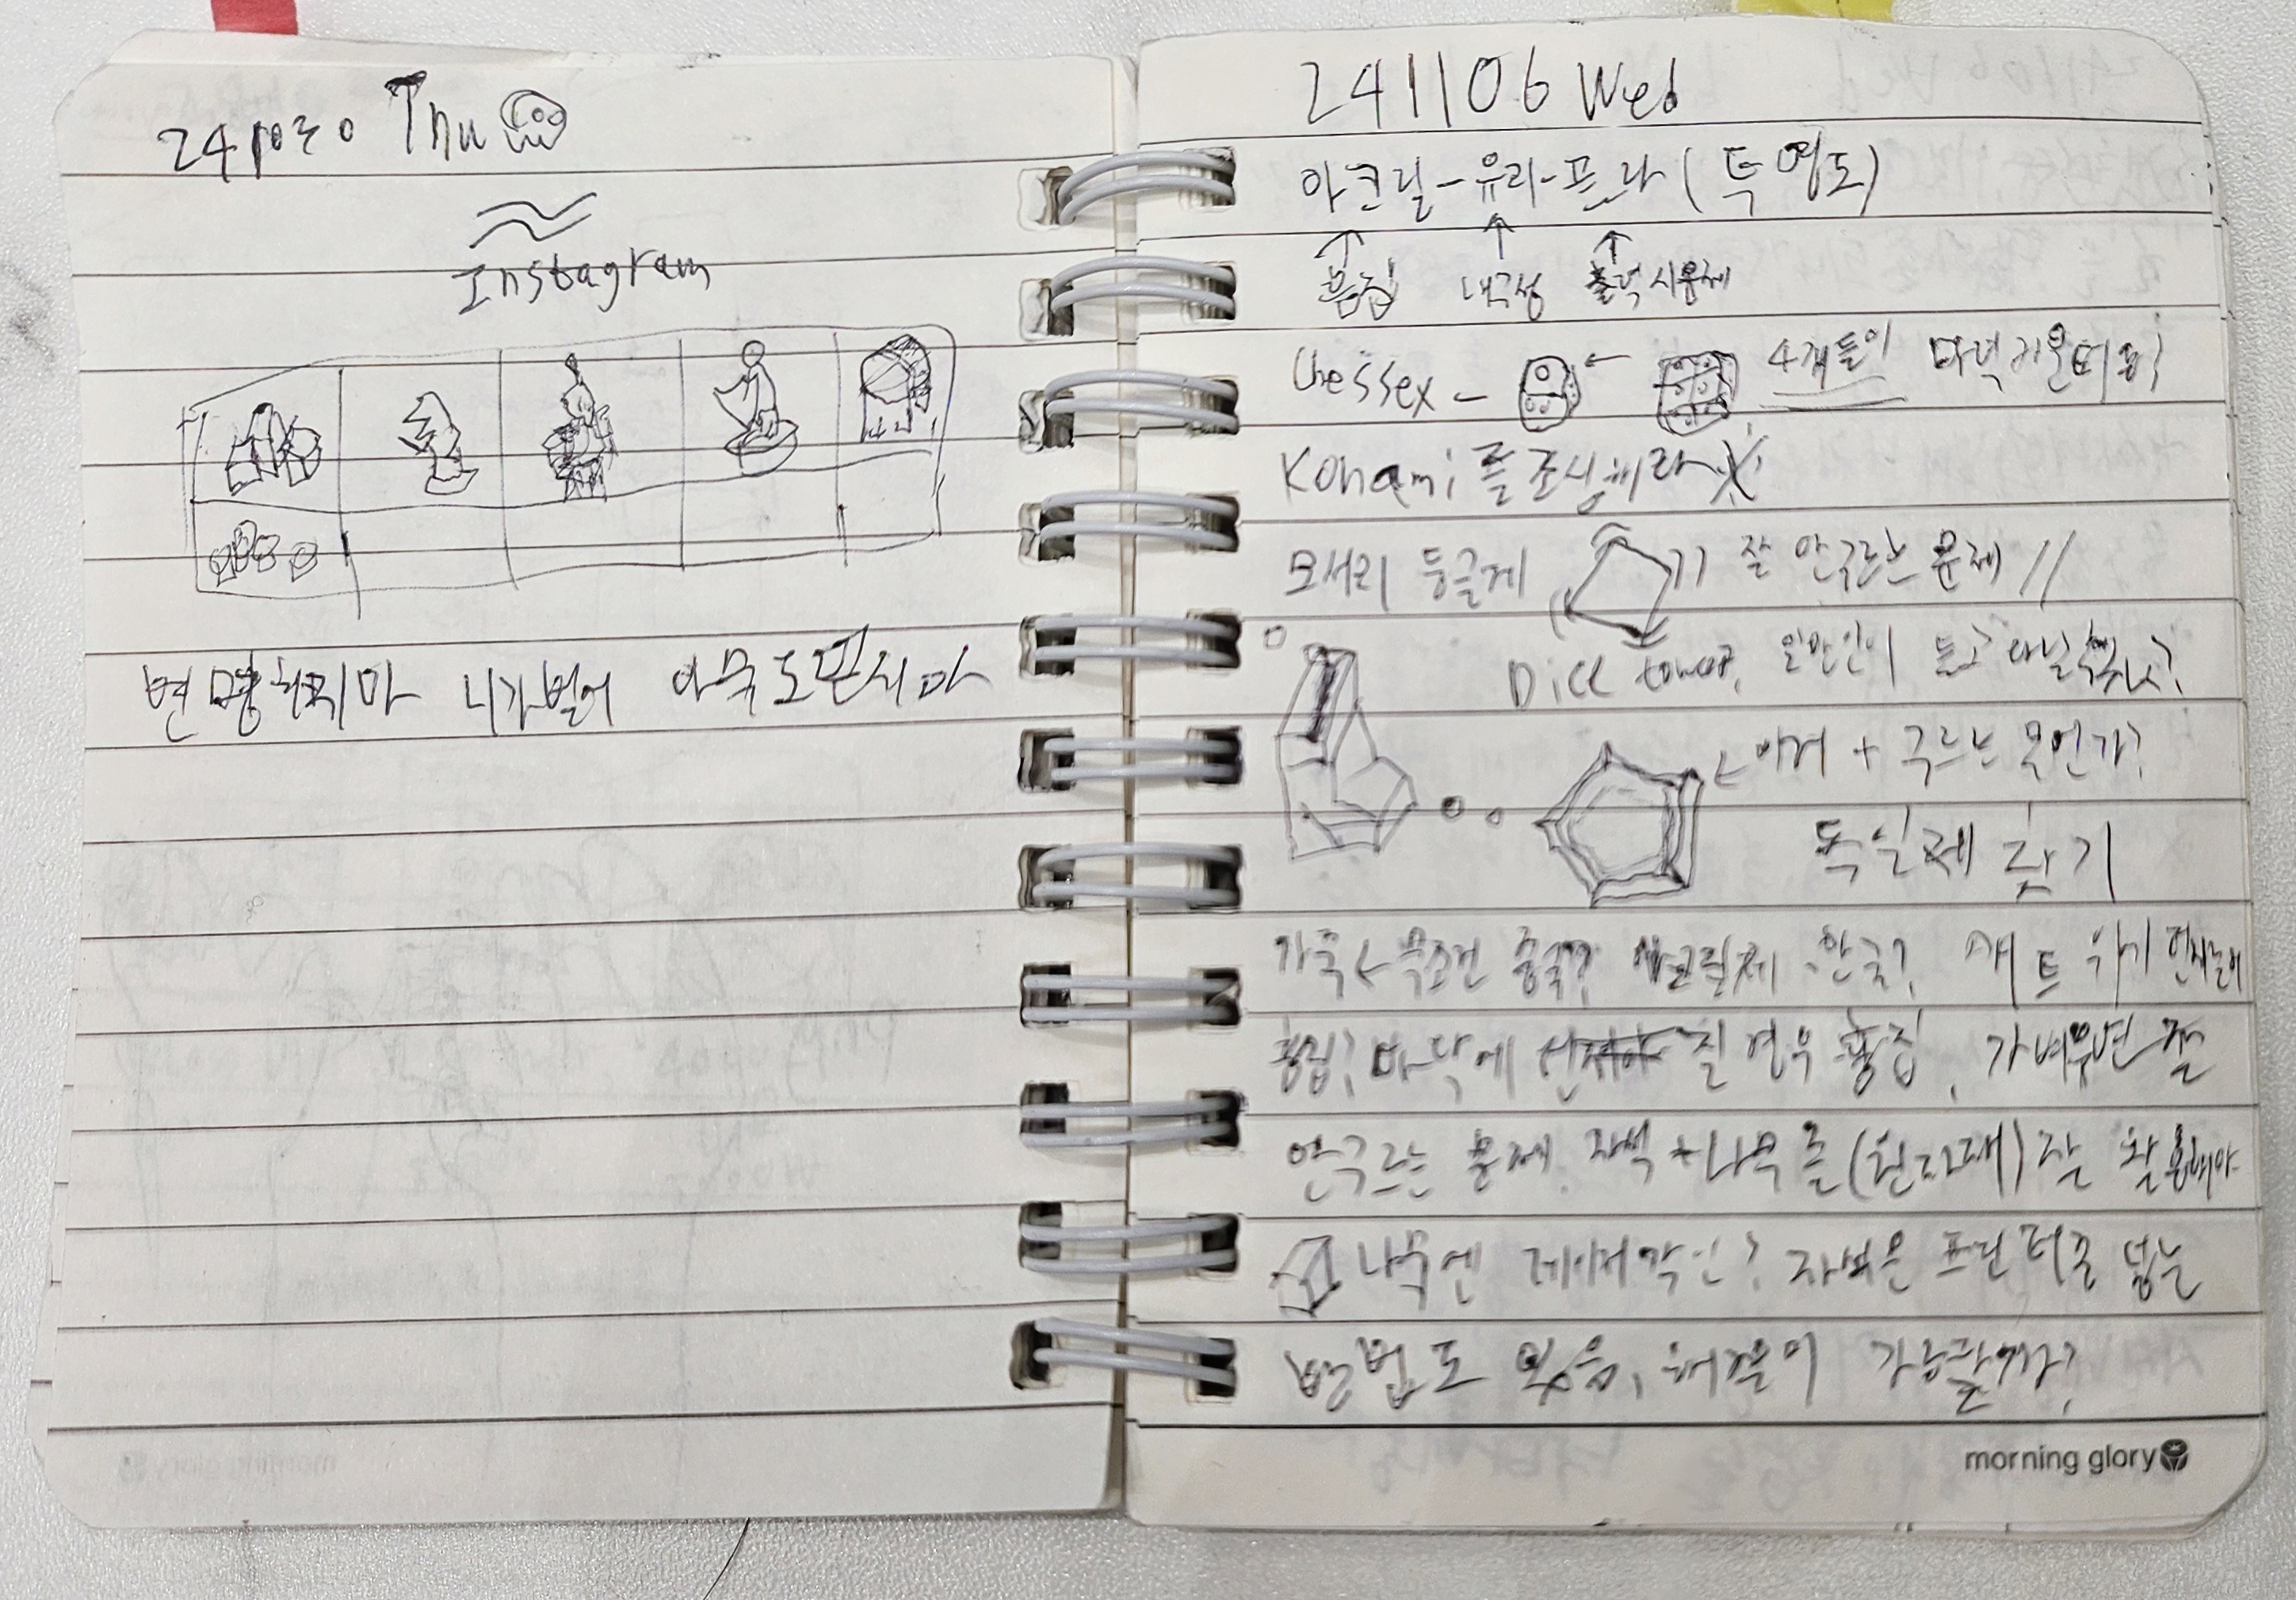 241030 Thu
Instagram
변명하지마 니가벌어 아무도믿지마
241106 Wed
아크릴-유리-프라(투명도)
흠집 내구성 출력시문제
Chessex - 4개들이
Konami를 조심해라
모서리 둥글게 잘 안구르는 문제 //
Dice tower, 일반인이 들고 다닐
이거 + 구르는 무언가?
독일제 찾기
가죽 무조건 중국? 아크릴제 한국? 매트 위가
흠집? 바닥에 질 경우 흠집, 가벼우면 잘
안구르는 문제. 자석+나무를 (원리대) 잘 활용해야
나무엔 레이저각인? 자석은 프린터로 뽑는
방법도 있음, 해결이 가능할까?
morning glory